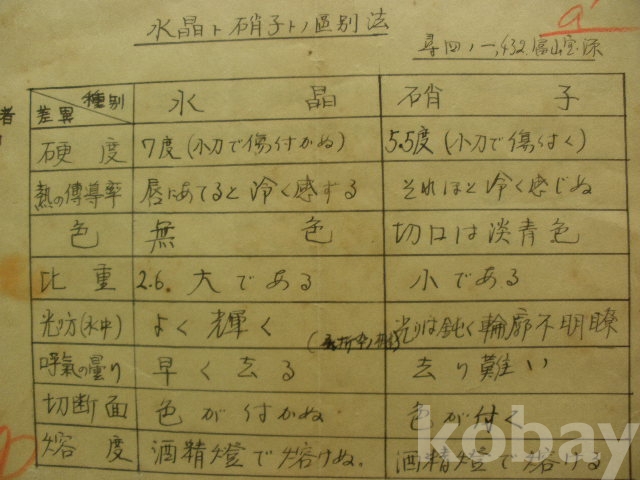 水晶ト硝子トノ區別法
尋四ノ一、432.
a
者
種別 差異 水 晶 硝 子
硬度 7度(小刀で傷付かぬ) 5.5度(小刀で傷付く)
熱の傳導率 唇にあてると冷く感ずる それほど冷く感じぬ
色 無 色 切口は淡青色
比重 2.6. 大である 小である
光り方(水中) よく輝く 光りは鈍く輪廓不明瞭
呼氣の曇り 早く去る 去り難い
切断面 色が付かぬ 色が付く
熔度 酒精燈で熔けぬ. 酒精燈で熔ける
kobay